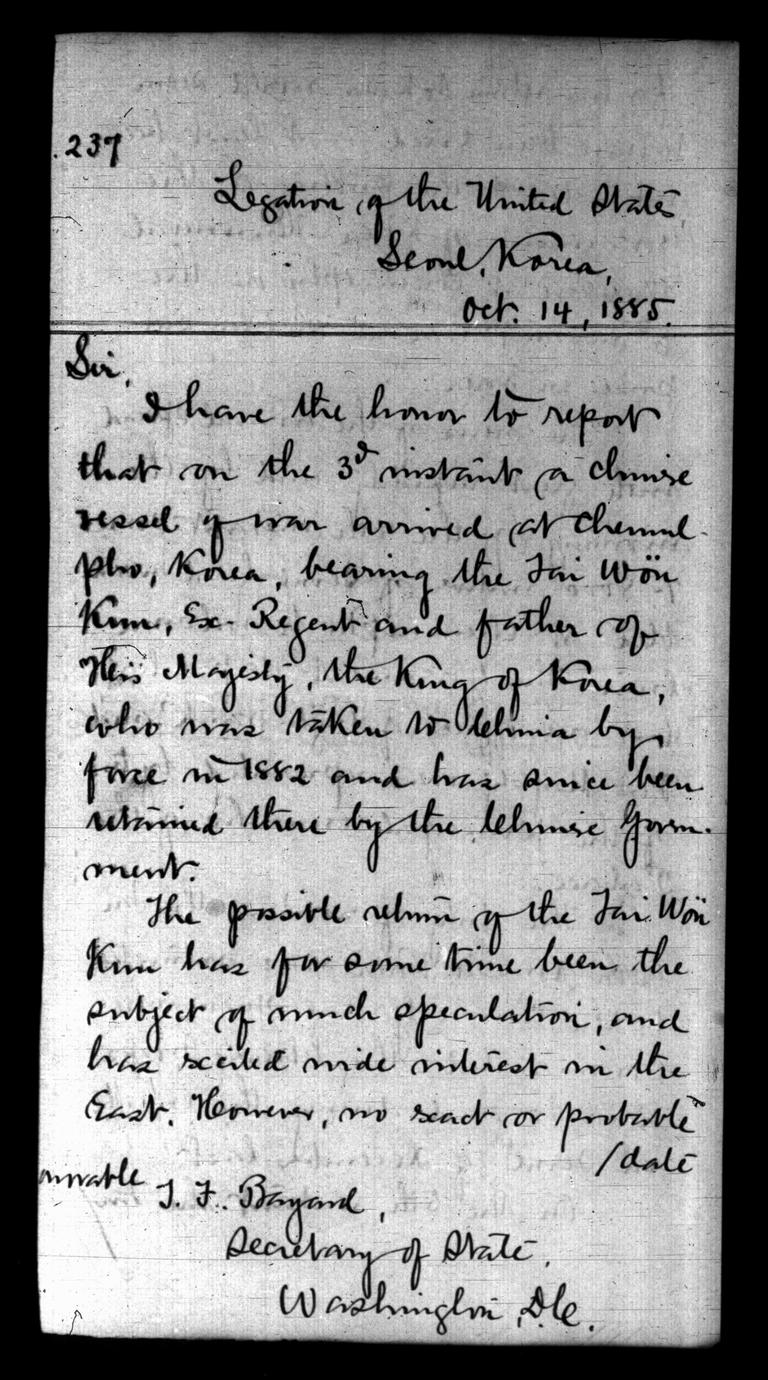 237
Legation of the United States,
Seoul, Korea,
Oct. 14, 1885.
Sir,
I have the honor to report
that on the 3d instant a chinese
vessel of war arrived at Chemul-
pho, Korea, bearing the Tai Wön
Kun, Ex-Regent and father of
His Majesty, the King of Korea,
who was taken to China by
force in 1882 and has since been
retained there by the Chinese Govern-
ment.
The possible return of the Tai Wön
Kun has for some time been the
subject of much speculation, and
has excited wide interest in the
East. However, no exact or probable
/date
T. F. Bayard,
Secretary of State,
Washington, D.C.